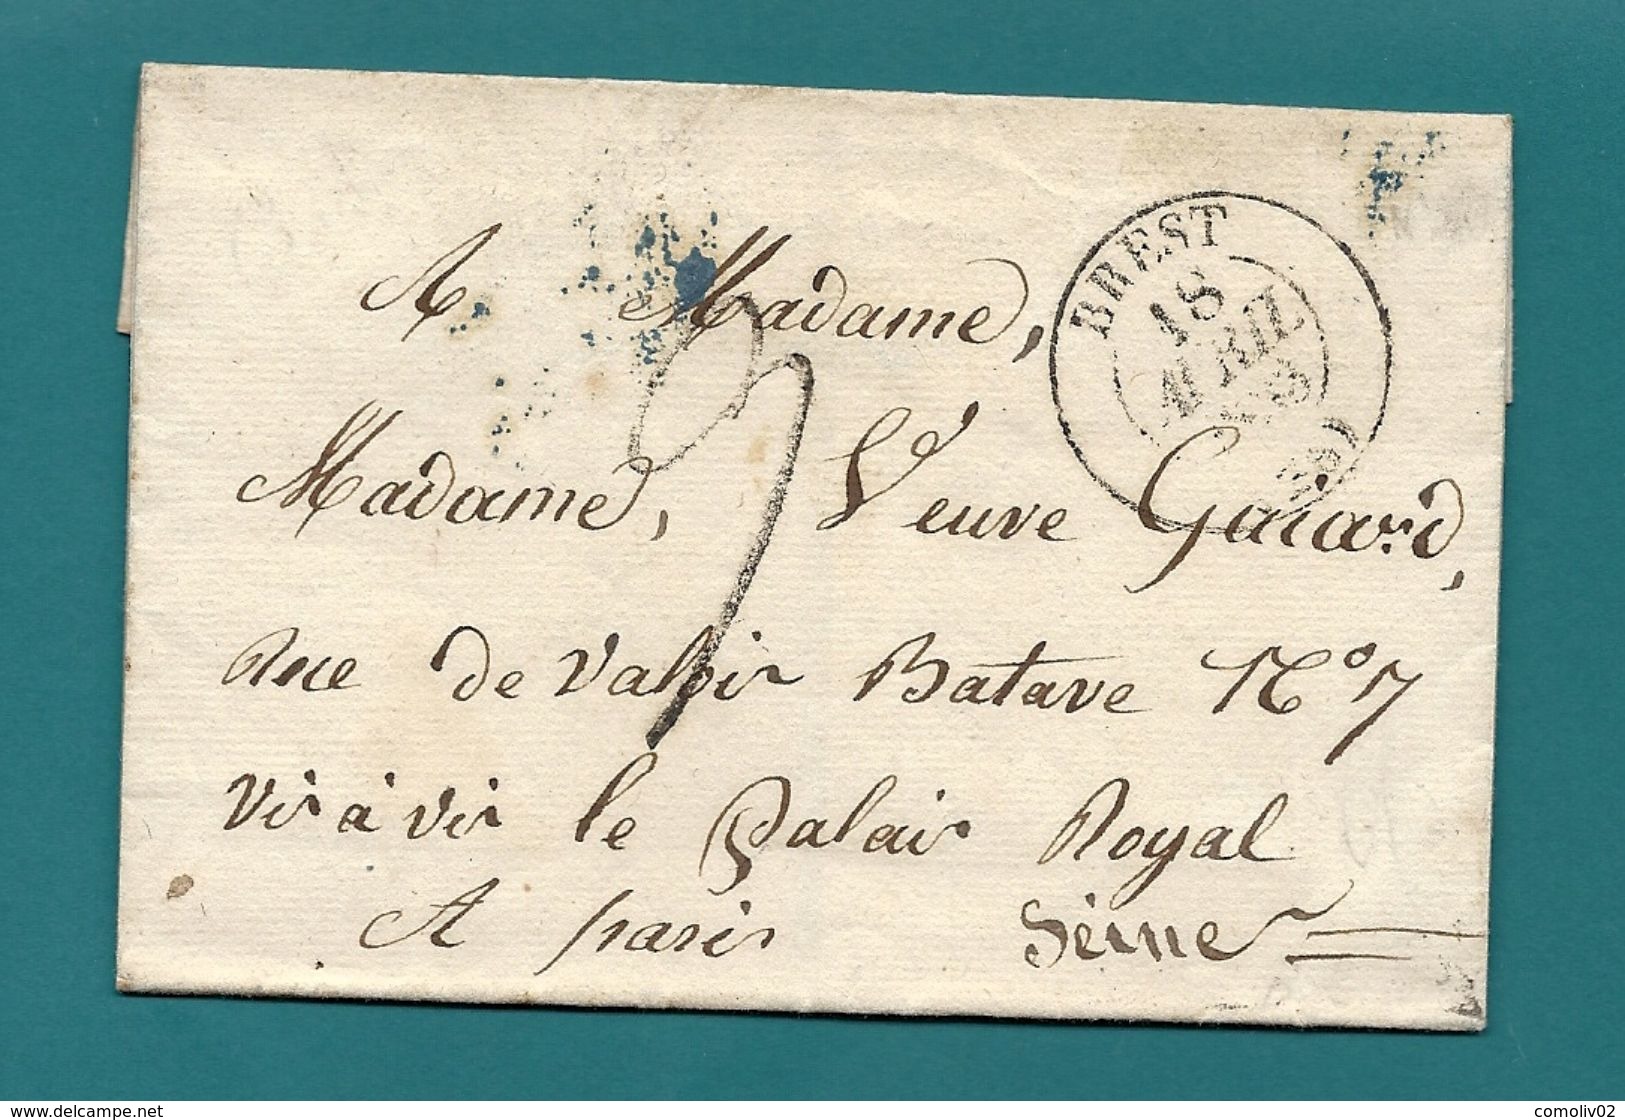 BREST
18
AVRIL
(28)
A Madame,
Madame, Veuve Gaiard,
Rue de Valois Batave N° 7
Vis à vis le Palais Royal
A paris Séine
www.delcampe.net
comoliv02